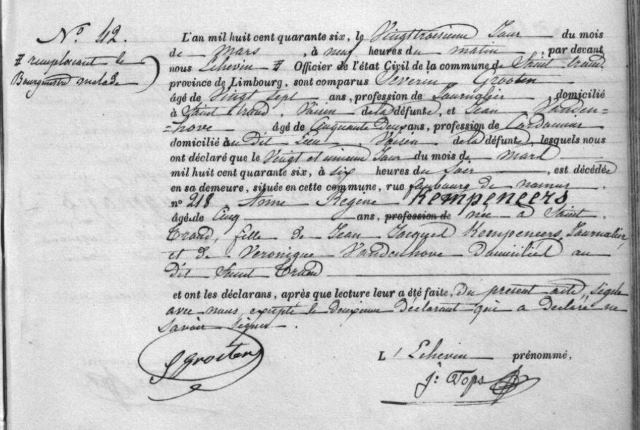 N.º 42.
L'an mil huit cent quarante six, le Vingt troisieme Jour du mois
de mars, à neuf heures du matin par devant
nous Echevin Officier de l'état Civil de la commune de Saint Trond
remplacant le
Bourgmestre malade
province de Limbourg, sont comparus Severin Grooten
âgé de Vingt Sept ans, profession de Journalier, domicilié
à Saint Trond, Voisin de la défunte, et Jean
hove âgé de Cinquante Deux ans, profession de Cordonnier
domicilié au Dit Lieu, Voisin de la défunte, lesquels nous
ont déclaré que le Vingt et unieme Jour du mois de mars
mil huit cent quarante six, à Six heures du Soir, est décédée
en sa demeure, située en cette commune, rue faubourg de namur
n° 218 Anne Regene Kempeneers
âgée de Cinq ans, profession de née a Saint
Trond, fille de Jean Jacques Kempeneers, Journalier
et de Veronique Vandenhove Domiciliés au
dit Saint Trond
et ont les déclarans, après que lecture leur a été faite, Du présent acte, Signé
avec nous, excepté le Deuxieme Declarant qui a Declaré ne
Savoir Signer.
S Grooten
L'Echevin prénommé.
J. Tops